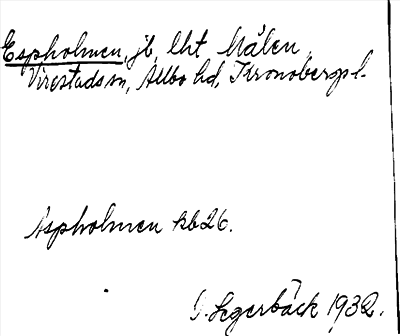 Espholmen, jb, lht Målen,
Virestads sn, Allbo hd, Kronobergs l.
Aspholmen kb 26.
Segerbäck 1932.